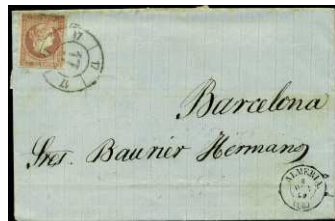 17
17
17
17
Barcelona
Sres. Baurier Hermanos
ALMERIA